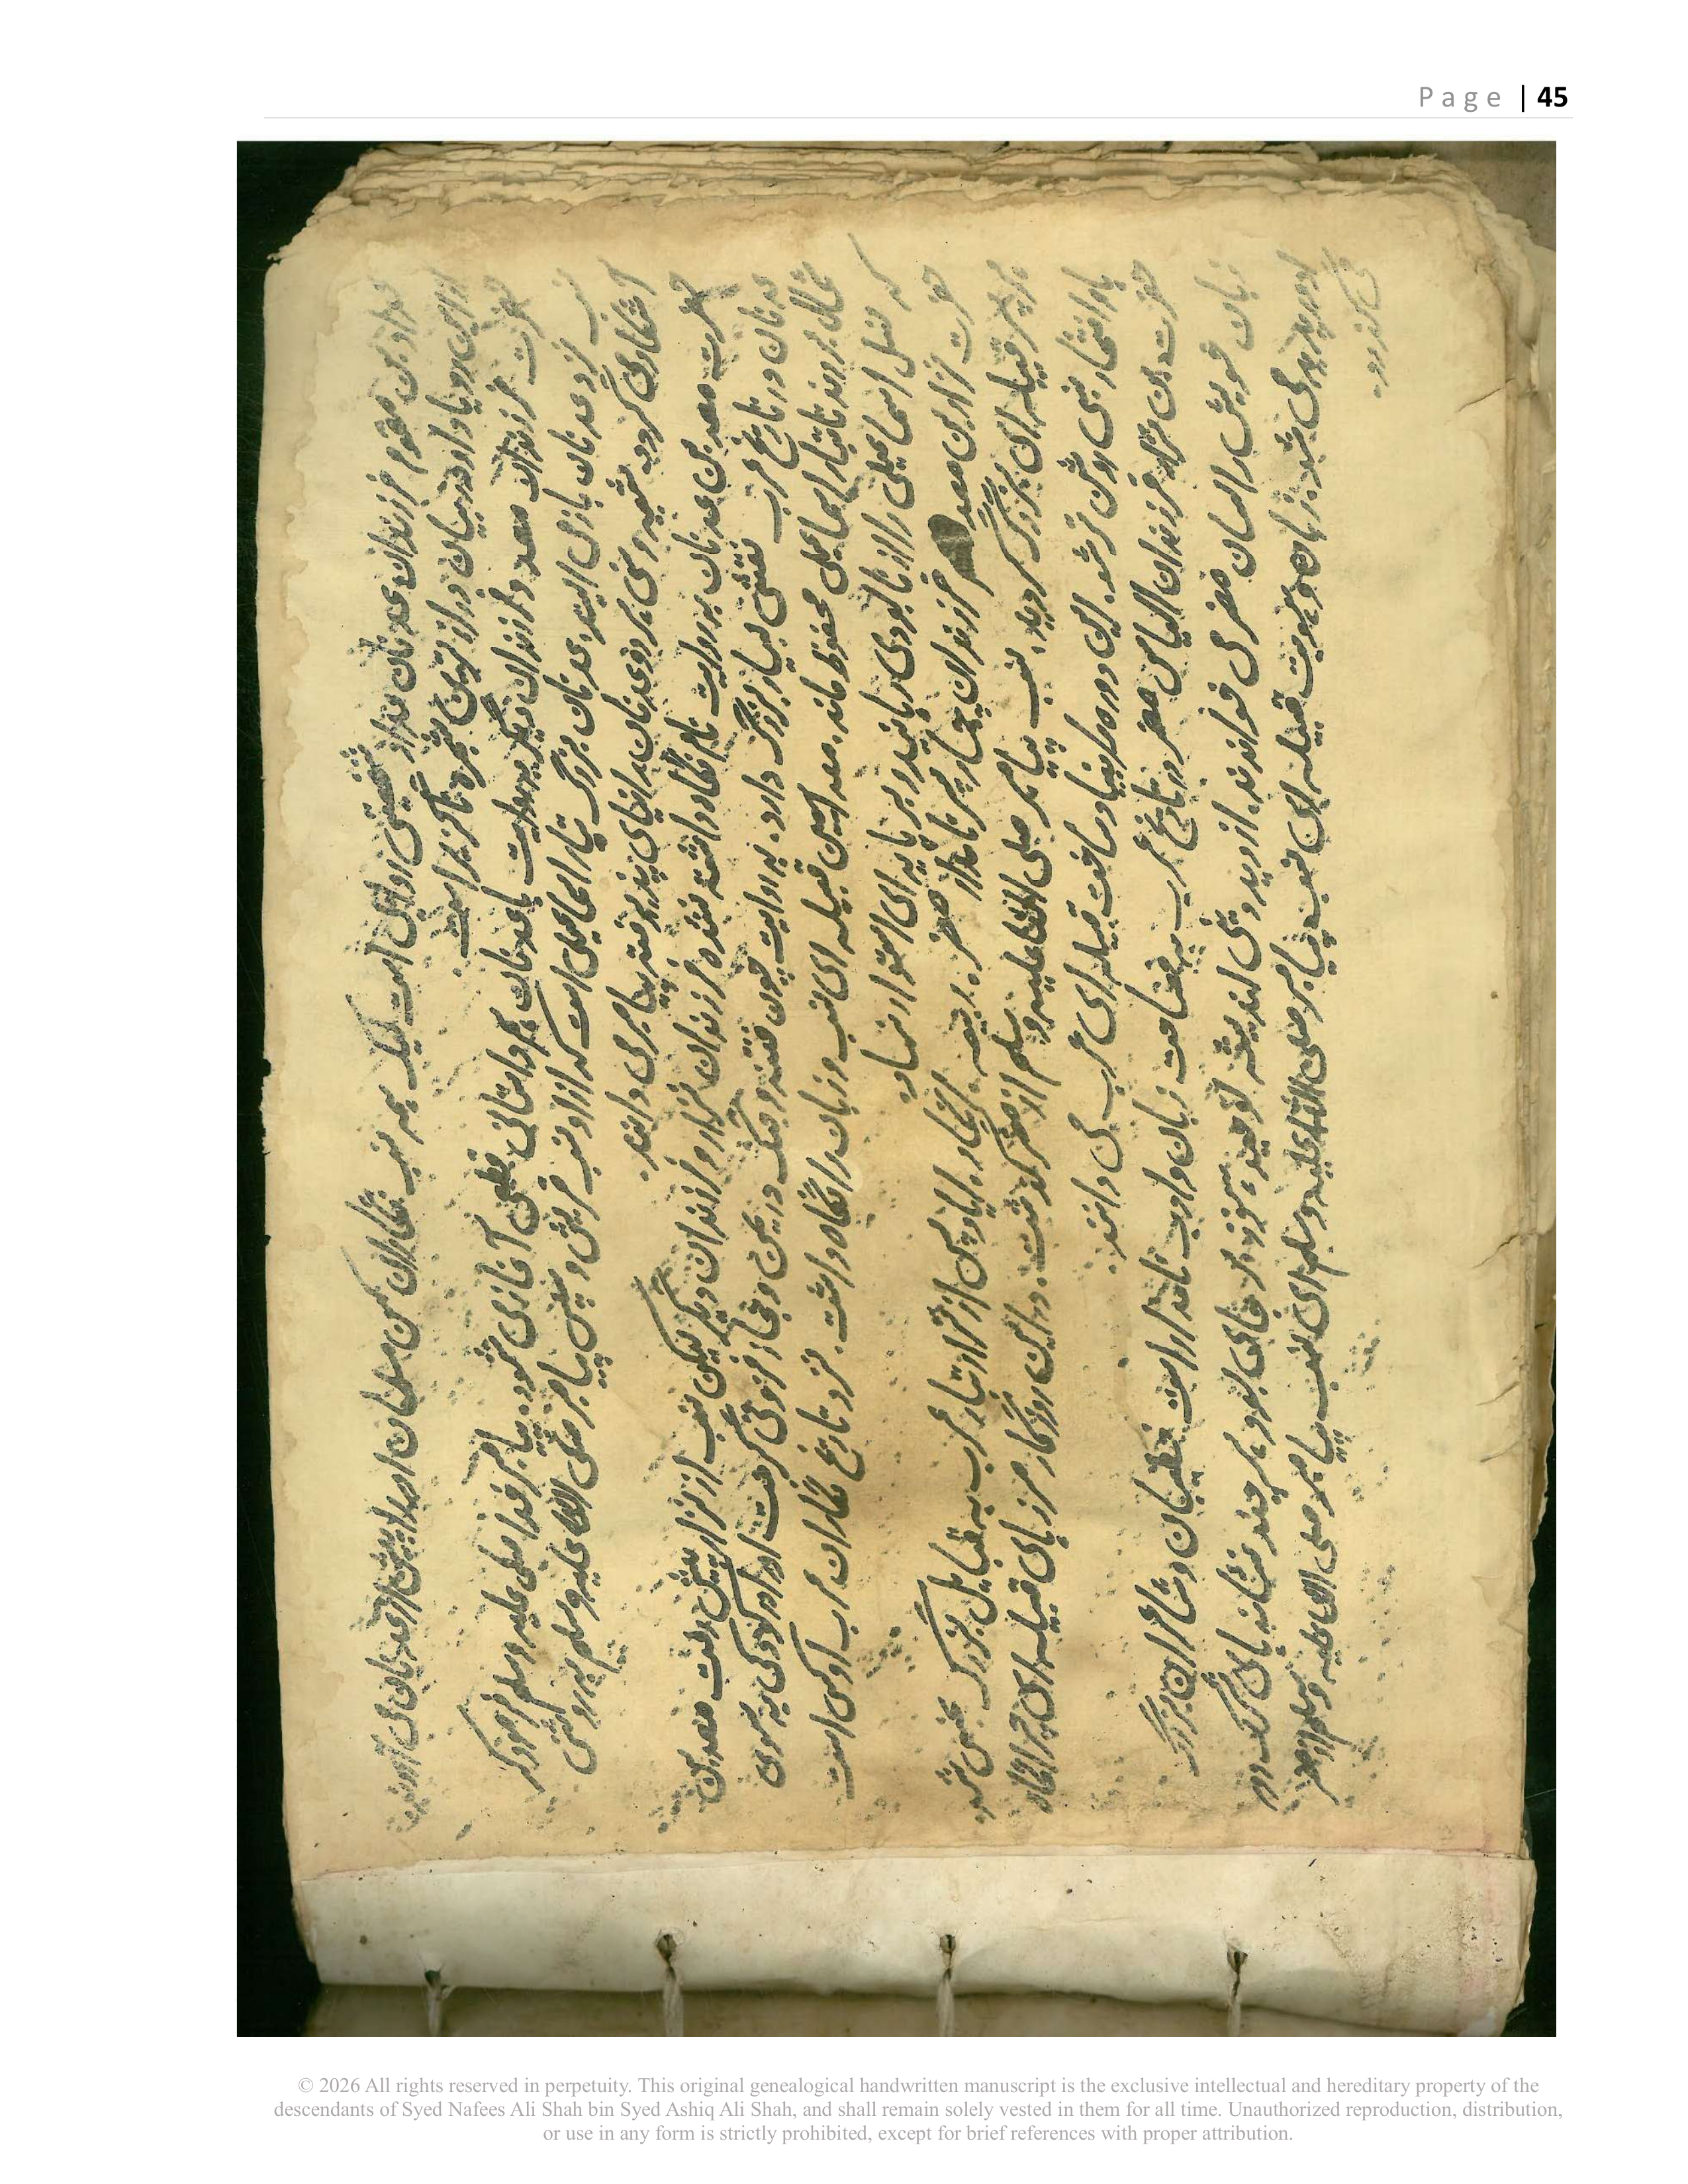 عداد بن مقوم فرزندان عدنان عداد شخصیتی است لیک همه نسب نگاران کهن مسلمان او را پیش از عدنان می آورند
رو یا او در میان دراز ترین شجره ناگزیر است.
حضرت فرزندان معد و فرزندان دیگر به روایت با عدنان هم داستانی قطعی آغاز می شود. پیامبر خدا صلی علیه وسلم فرمود که
نسب نزد عدنان باز می ایستد عدنان بزرگ تبار اسماعیلی است که از او نسب قریش و سپس پیامبر صلی الله علیه وسلم به روشنی
آشکار می گردد شیعه و سنی هر دو عدنان را نیای پذیرفته پیامبر می دانند.
حضرت معد بن عدنان به روایت نام نگاه داشته نشده فرزندان نزار و فرزندان دیگر لیکن نسب از نزار پیش رفت معد بن
عدنان در تاریخ عرب نقشی بسیار بزرگ دارد. به روایت چون فتنه و جنگ در یمن و حجاز فزونی گرفت او را در کودکی به سوی
شمال بردند تا تبار اسماعیلی محفوظ ماند. معد این قبیله ای نسب و زبان را نگاه داشت. نزد تاریخ نگاران عرب او کسی است
که نسل اسماعیلی را از نابودی رهانید و بر پایه ای استوار نهاد.
حضرت نزار بن معد فرزندان چهار پسر نامدار مضر. ربیعه. انمار. ایاد پس از نزار تبار عرب به قبایل بزرگ بخش شد.
هر پسر قبیله ای بزرگ گردید. نسب پیامبر صلی الله علیه وسلم از مضر گذشت. در این روزگار مرزهای قبیله ای
با و افتخار نسبی روشن تر شد. این دوره را بنیاد ساخت قبیله ای عرب می دانند.
حضرت بن نزار فرزندان الیاس مضر در تاریخ عرب به فصاحت زبان و ادب نامدار است خطیبان و شاعران بزرگ
زبان خویش را لسان مضر می خواندند. از دید دینی اندیشه توحید هنوز بر جای بود هر چند نشانه های شرک در
او پدیدار می شد. هویت قبیله ای نسب پیامبر صلی الله علیه وسلم ای نسب پیامبر صلی الله علیه وسلم از مضر
می گذرد.
Page | 45
© 2026 All rights reserved in perpetuity. This original genealogical handwritten manuscript is the exclusive intellectual and hereditary property of the
descendants of Syed Nafees Ali Shah bin Syed Ashiq Ali Shah, and shall remain solely vested in them for all time. Unauthorized reproduction, distribution,
or use in any form is strictly prohibited, except for brief references with proper attribution.